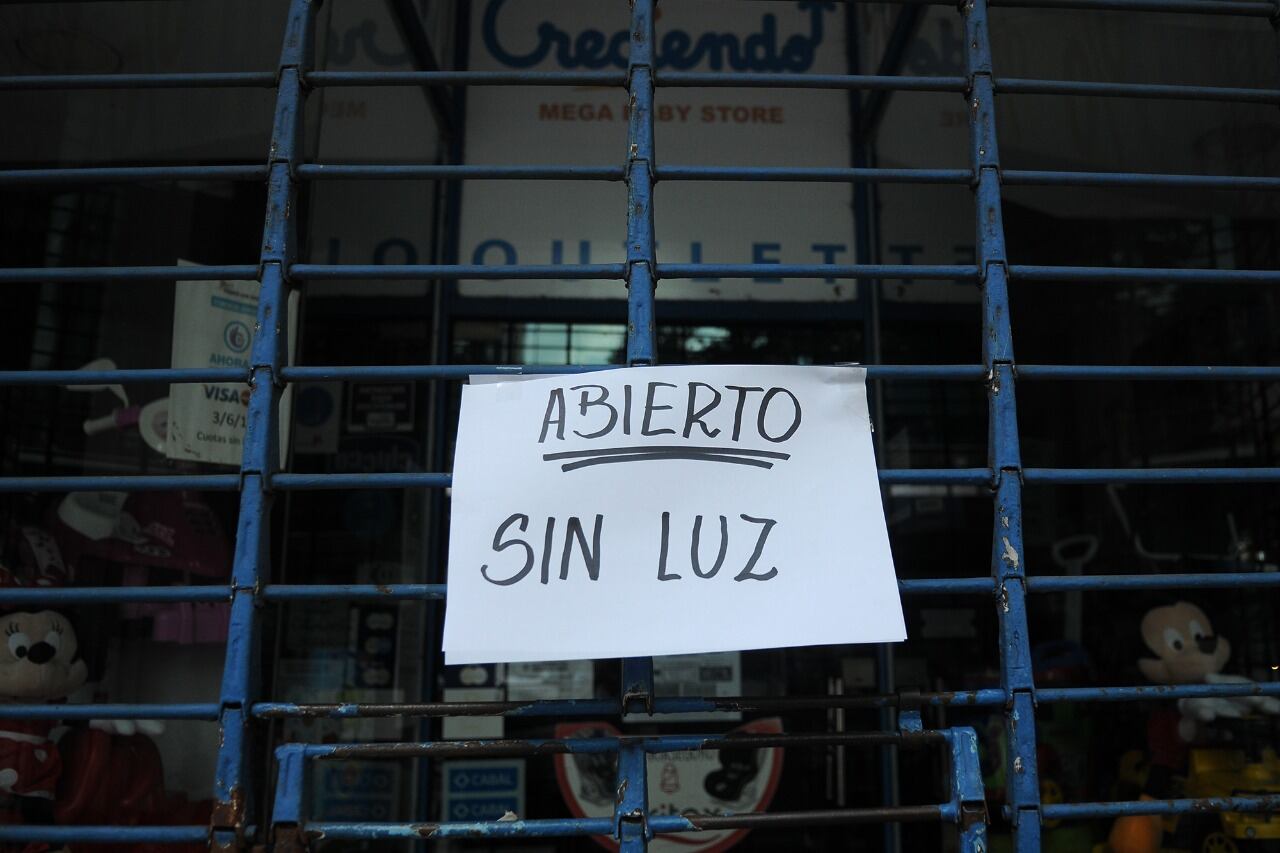 Creciendo
MEGA BABY STORE
OUTLET
AHORA
VISA
3/6/1
Cuotas sin
ABIERTO
SIN LUZ
CABAL
CABAL